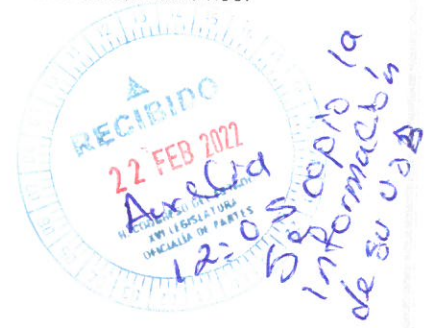 RECIBIDO
22 FEB 2022
Aurelia
XVI LEGISLATURA
OFICIALIA DE PARTES
12:05
Se copio la
información
de su USB